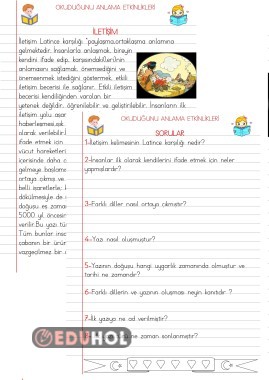 OKUDUĞUNU ANLAMA ETKİNLİKLERİ
İLETİŞİM
İletişim Latince karşılığı "paylaşma,ortaklaşma anlamına
gelmektedir. İnsanlarla anlaşmak, bireyin
kendini ifade edip, karşısındaki(leri)nin
anlamasını sağlamak, önemsediğini ve
önemsenmek istediğini göstermek, etkili
iletişim becerisi ile sağlanır. Etkili iletişim
becerisi kendiliğinden varolan bir
yetenek değildir, öğrenilebilir ve geliştirilebilir. İnsanların ilk
iletişim yolu
haberleşmesi,ışık
olarak verilebilir.İ
ifade etmek için
vücut hareketleri
içerisinde daha
gelmeye başlam
ortaya çıkmış ve
belli işaretlerle,
dökülmesiyle de
doğuşu es zama
5000 yıl öncesin
verilir.Bu yazı tü
Tüm bunlar insa
çabanın bir ürün
vazgeçilmez bir
OKUDUĞUNU ANLAMA ETKİNLİKLERİ
SORULAR
1-İletişim kelimesinin Latince karşılığı nedir?
2-İnsanlar ilk olarak kendilerini ifade etmek için neler
yapmışlardır?
3-Farklı diller nasıl ortaya çıkmıştır?
4-Yazı nasıl oluşmuştur?
5-Yazının doğuşu hangi uygarlık zamanında olmuştur ve
tarihi ne zamandır?
6-Farklı dillerin ve yazının oluşması neyin kanıtıdır ?
7-İlk yazıya ne ad verilmiştir?
ne zaman sonlanmıştır?
EDUHOL